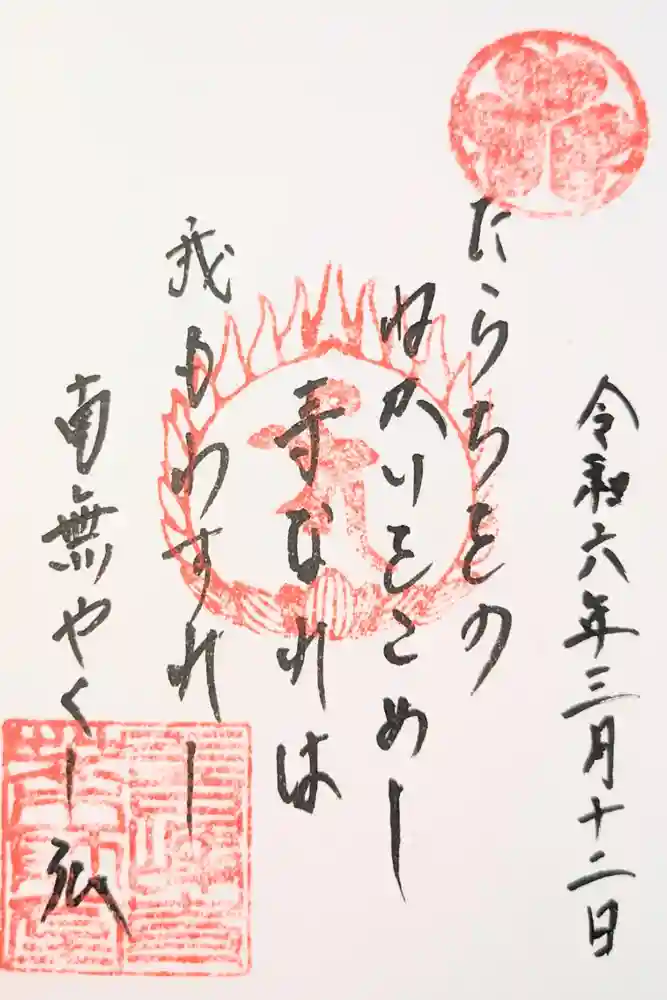 令和六年三月十二日
たらちをの
ねかいをこめし
寺なれは
我もわすれし
南無やくし佛